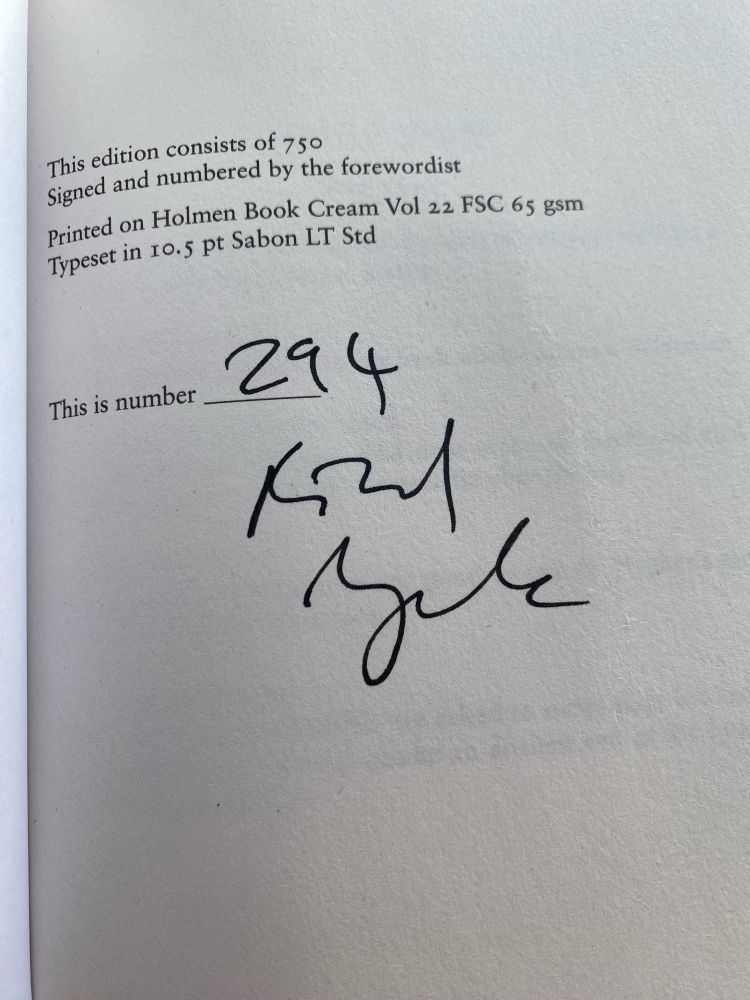 This edition consists of 750
Signed and numbered by the forewordist
Printed on Holmen Book Cream Vol 22 FSC 65 gsm
Typeset in 10.5 pt Sabon LT Std
This is number 294